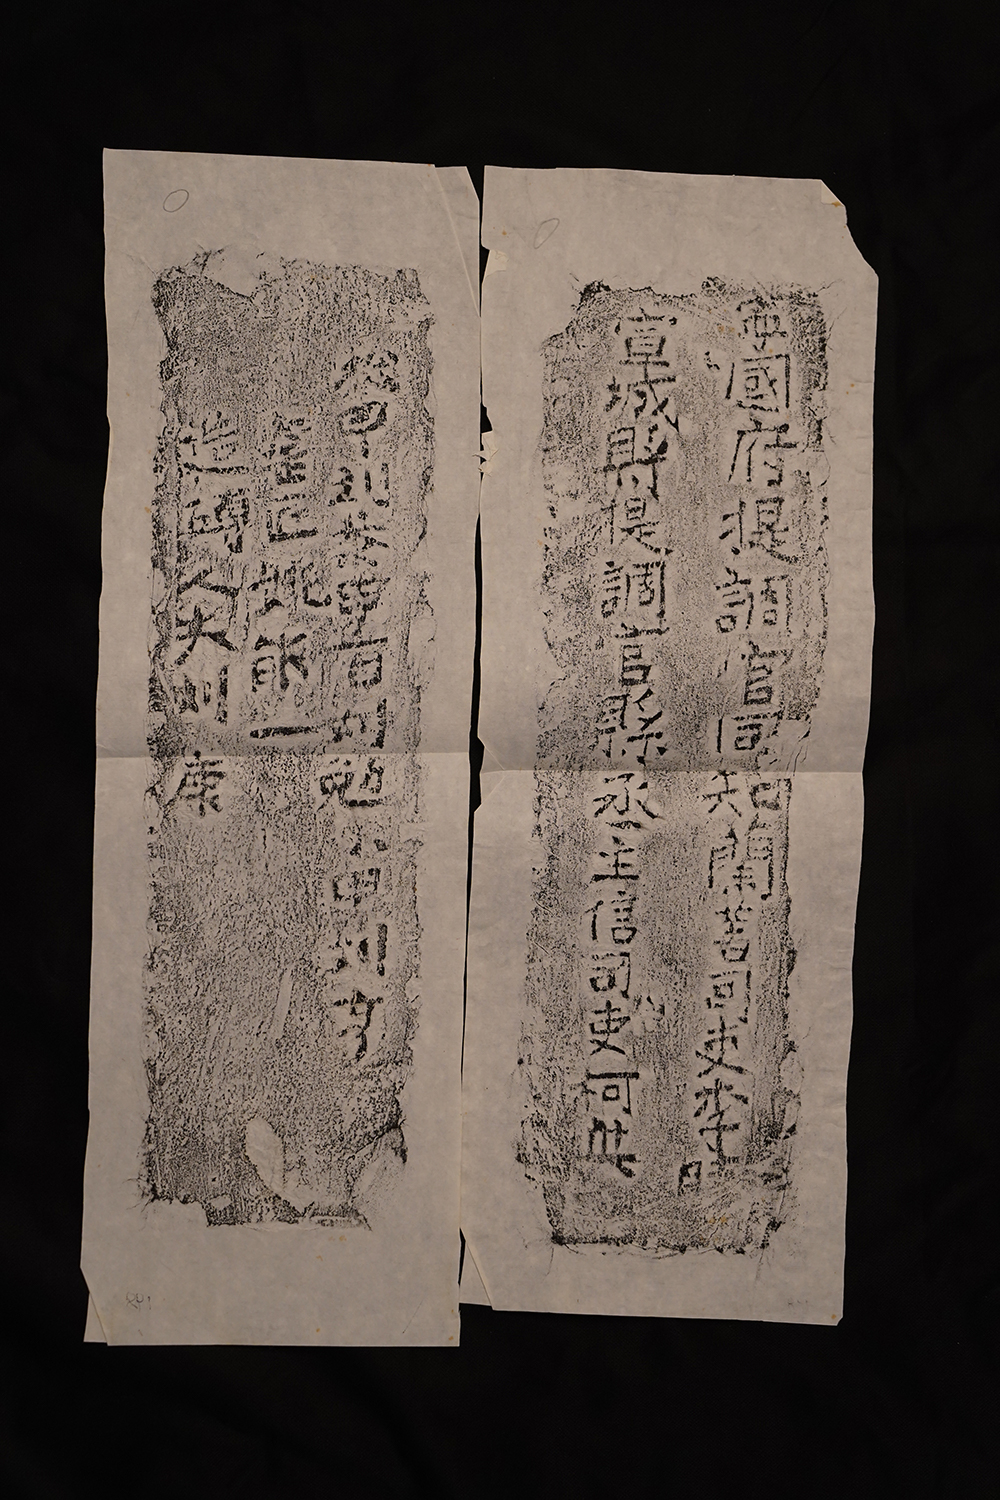 寧國府提調官同知司吏李
宣城縣提調官縣丞王信司吏何
總甲孔甲首刘勉小甲刘
窑匠姚能一
造磚人夫刘康